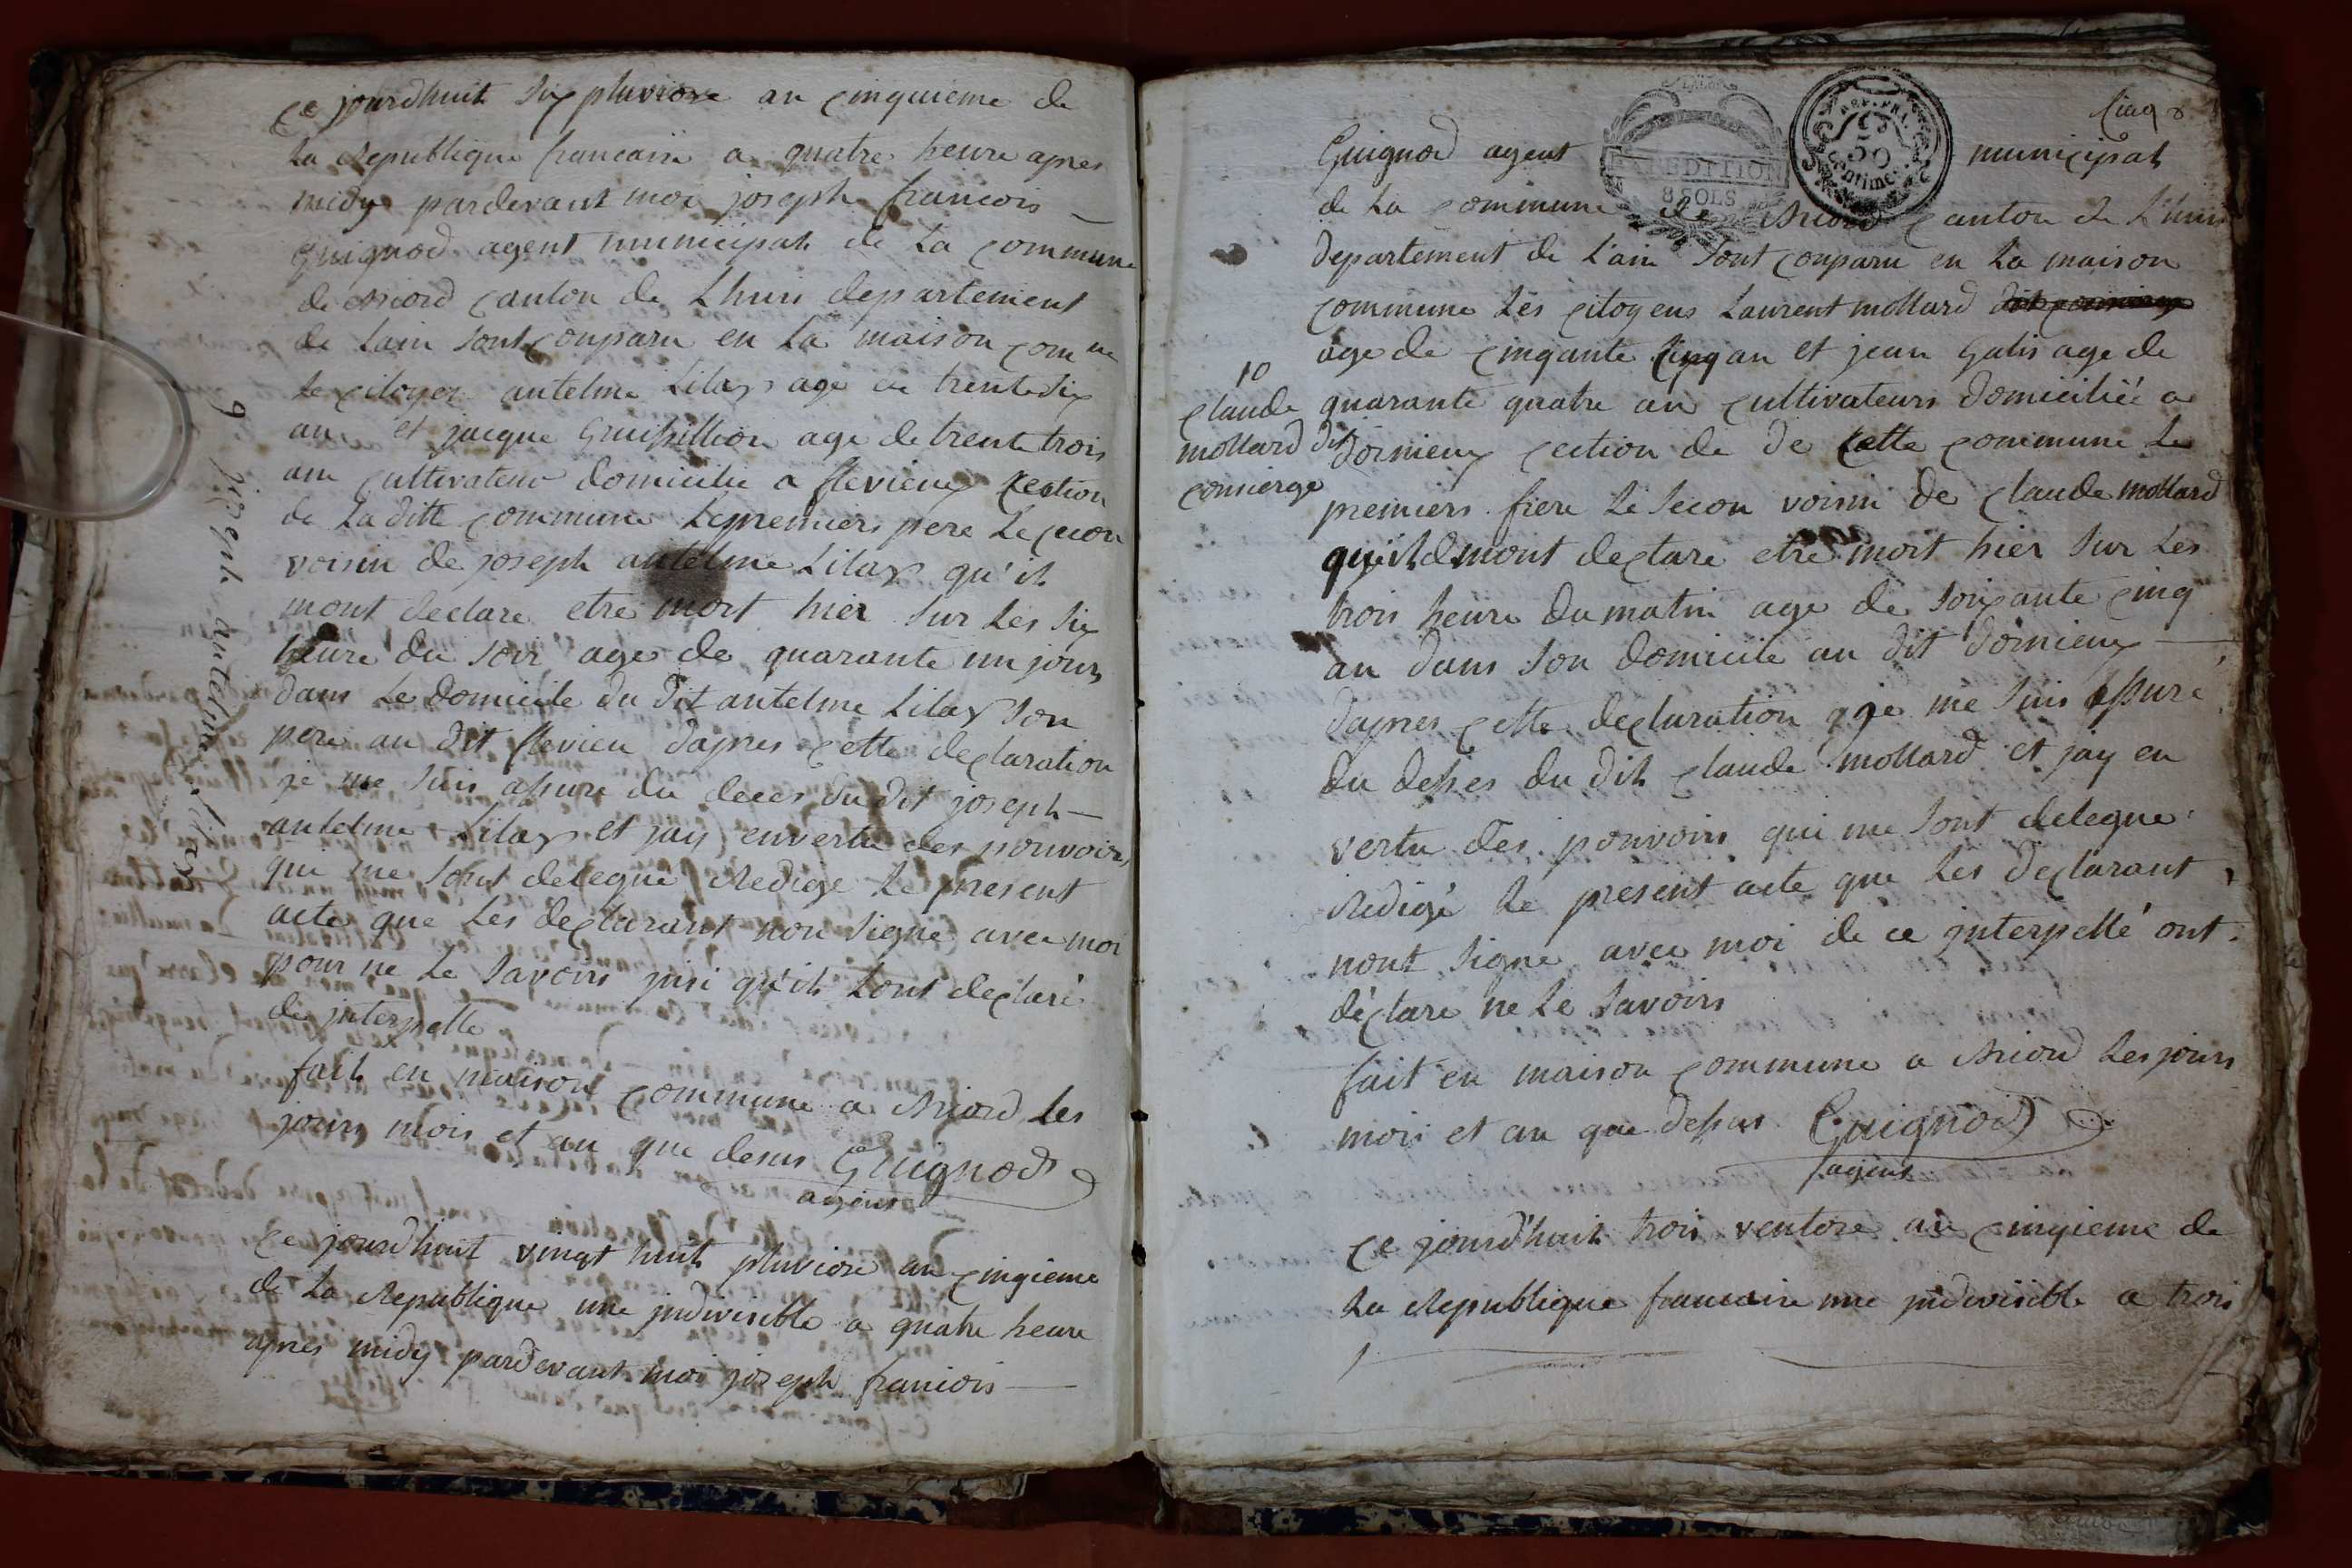 ce jourdhuit six pluviose an cinquieme de
la Republique francaise a quatre heure apres
midy pardevant moi joseph francois
Guignod agent municipal de la commune
de Briord canton de Lhuis departement
de Lain sont conparu en la maison comme
le citoyen antelme Lilas age de trentesix
an et jacque age de trente trois
an cultivateur domicilie a flevieux cection
de laditte commune le premiers pere le cecon
voisin de joseph antelme Lilas qu'il
mont declare etre mort hier sur les six
heure du soir age de quarante un jours
dans le domicile du dit antelme Lilas son
pere au dit flevieu dapres cette declaration
je me suis assure du deces du dit joseph
antelme Lilas et jay envertu des pouvoirs
que me sont delegue Redige le present
acte que les declarant non signe avec moi
pour ne le savoirs jnsi qu'ils lont declaré
de jnterpelle
fait en maison commune a Briord les
jours mois et an que desus Guignod
agent
ce jourdhuit vingt huit pluviose an cinqieme
de la Republique une jndivisible a quatre heure
apres midy pardevant moi joseph francois
9 joseph antelme Lilas
cinq
RÉP. FRA.
50
centimes
EXPEDITION
8 SOLS
Guignod agent municipal
de la commune de Briord canton de Lhuis
departement de Lain sont conparu en la maison
commune les citoyens Laurent mollard
age de cinqante cinq an et jean Galis age de
quarante quatre an cultivateurs domicilié a
dornieux cection de de cette commune le
premiers frere le secon voisin de claude mollard
qu'ils mont declare etre mort hier sur les
trois heure du matin age de soixante cinq
an dans son domicile au dit dornieux
dapres cette declaration je me suis assure
du desses du dit claude mollard et jay en
vertu des pouvoirs qui me sont delegue
Redigé le present acte que les declarant
nont signe avec moi de ce jnterpellé ont
déclare ne le savoirs
fait en maison commune a Briord les jours
mois et an que dessus Guignod
agent
ce jourd'huit trois ventose an cinqieme de
la Republique francaise une jndivisible a trois
10
claude
mollard dit
concierge